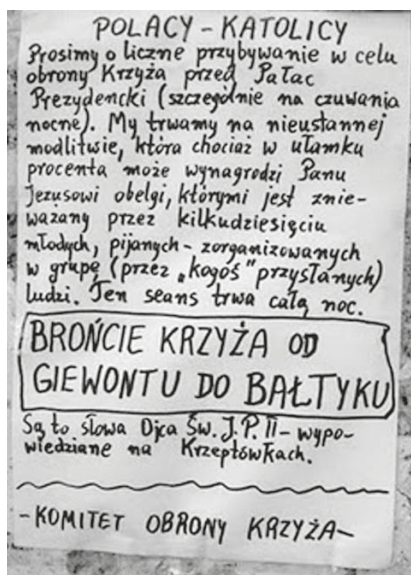 POLACY - KATOLICY
Prosimy o liczne przybywanie w celu
obrony Krzyża przed Pałac
Prezydencki (szczególnie na czuwania
nocne). My trwamy na nieustannej
modlitwie, która chociaż w ułamku
procenta może wynagrodzi Panu
Jezusowi obelgi, którymi jest znie-
ważany przez kilkudziesięciu
młodych, pijanych - zorganizowanych
w grupę (przez „kogoś" przysłanych)
ludzi. Ten seans trwa całą noc.
BROŃCIE KRZYŻA OD
GIEWONTU DO BAŁTYKU
Są to słowa Ojca Św. J.P. II - wypo-
wiedziane na Krzeptówkach.
- KOMITET OBRONY KRZYŻA -